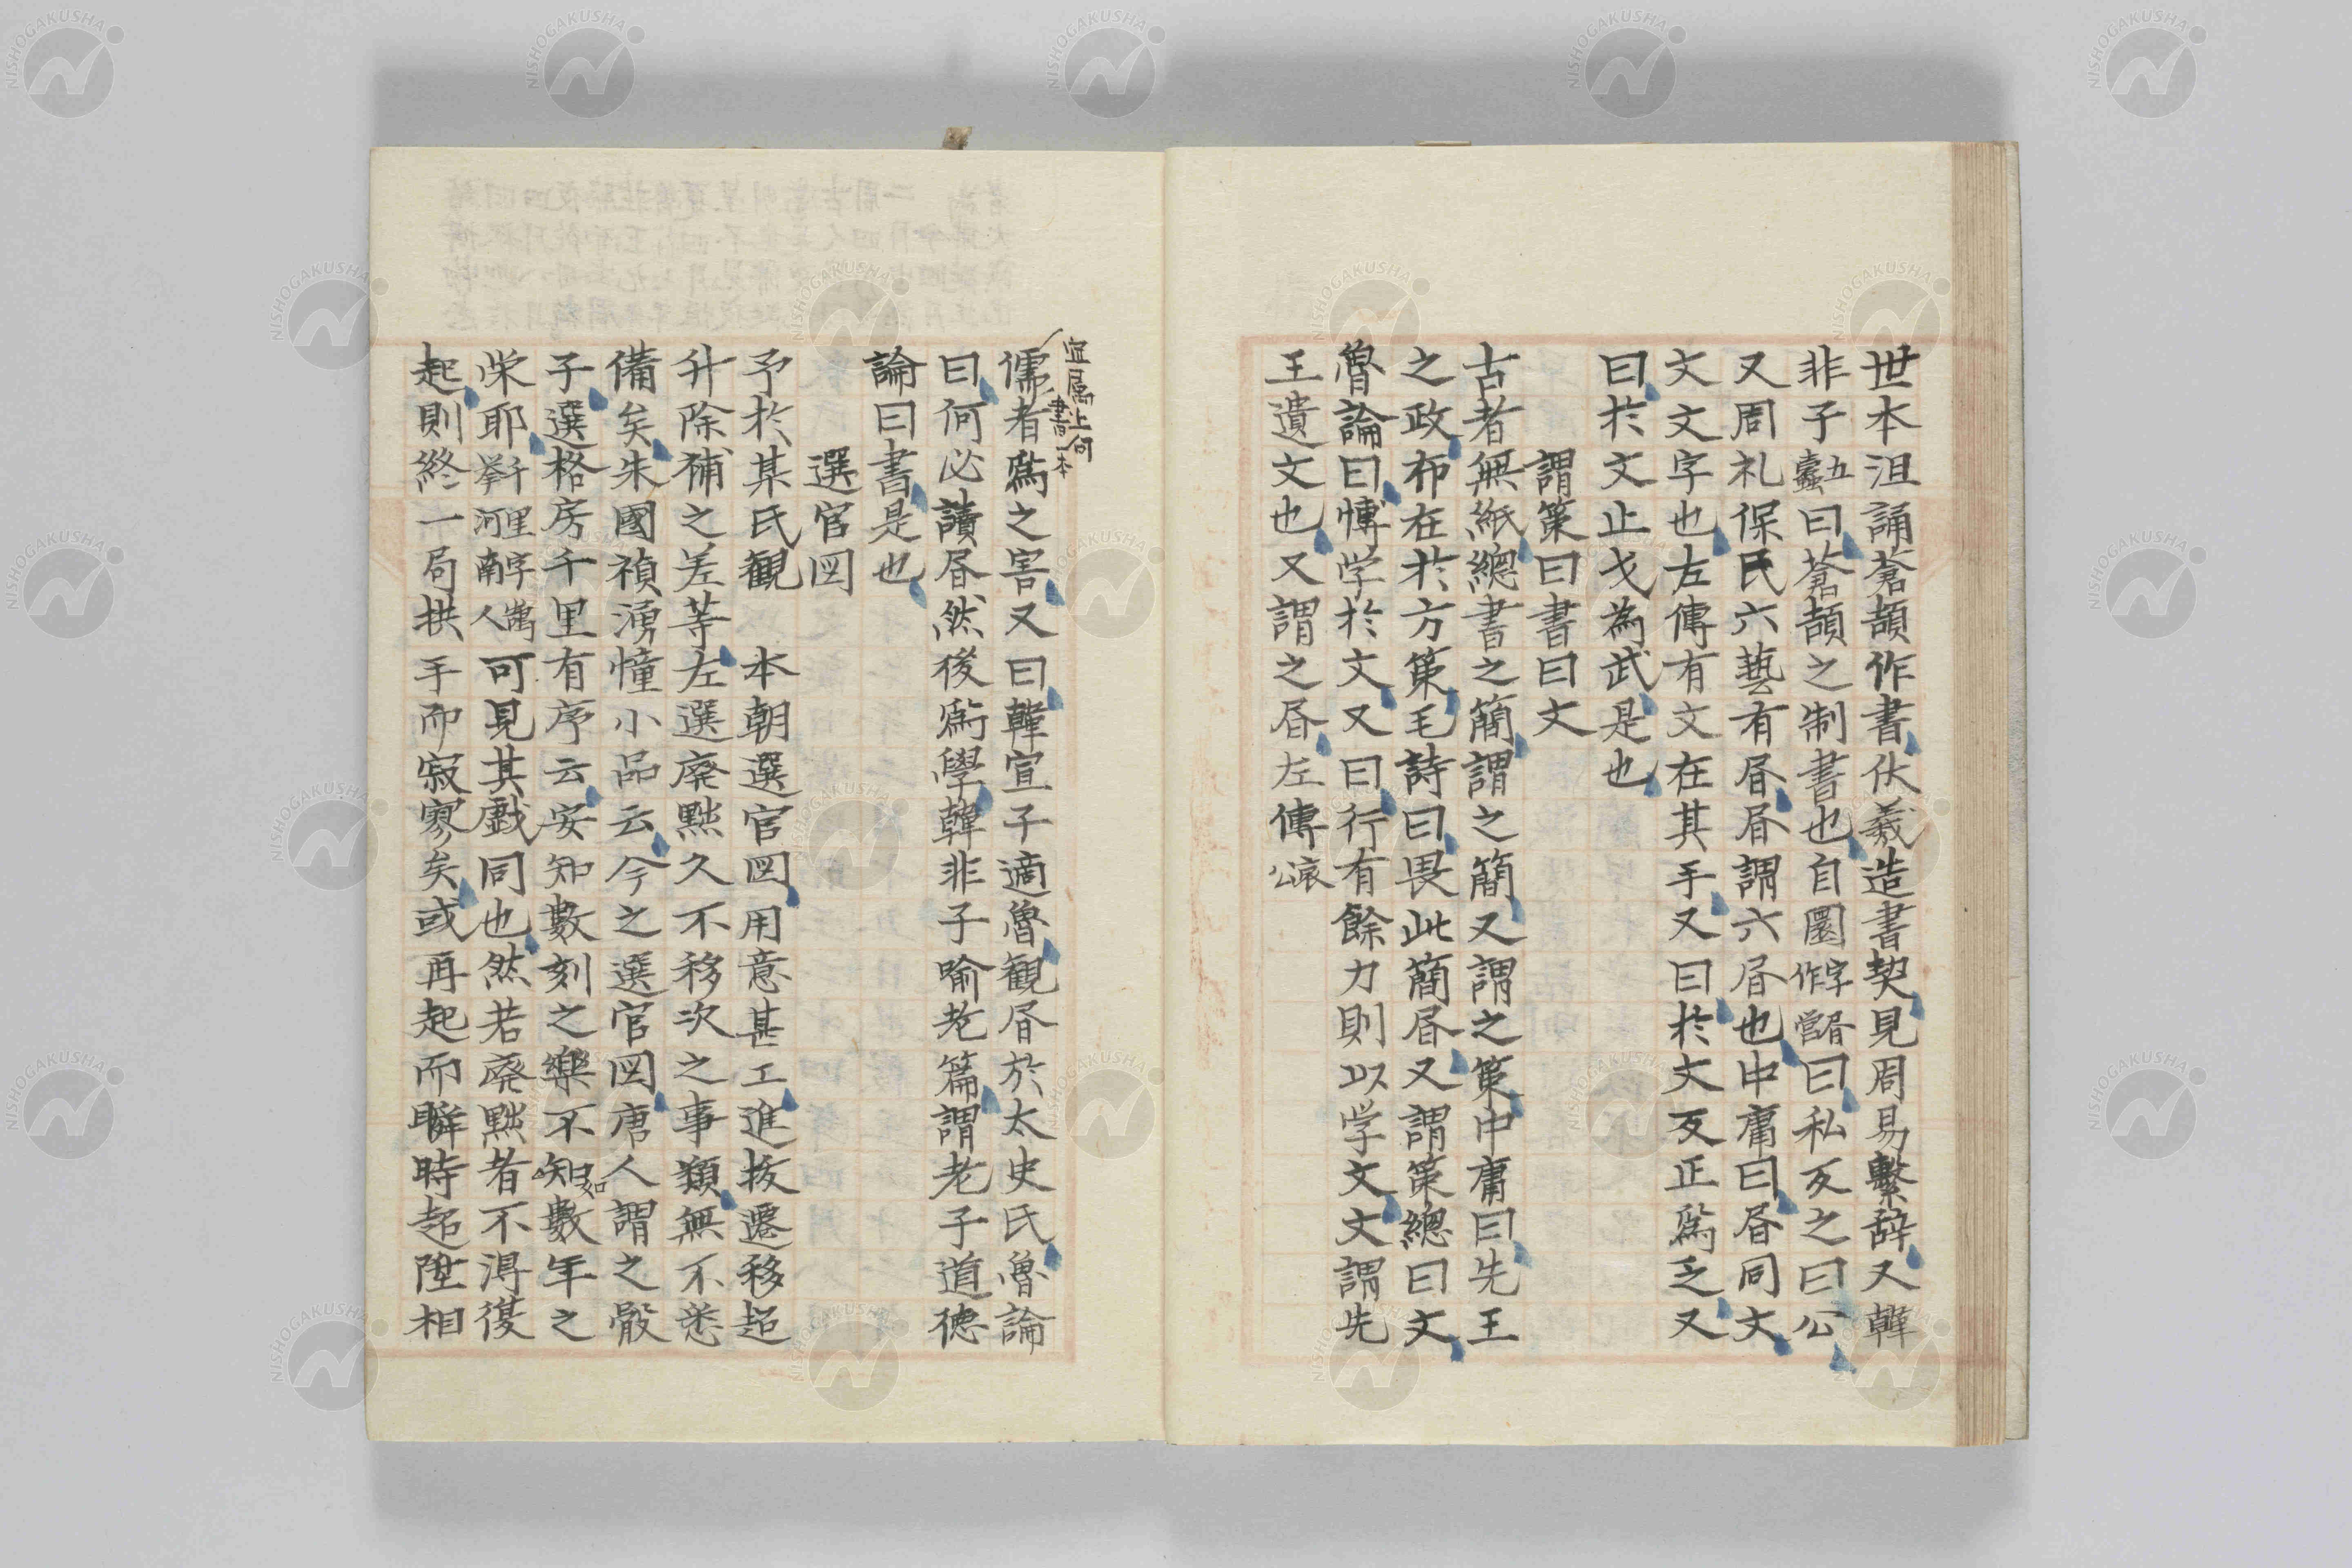 世本沮誦蒼頡作書伏羲造書契見周易繫辞又韓
非子五蠹曰蒼頡之制書也自圜字昬作営曰私㕛之曰公
又周礼保氏六藝有昬昬謂六昬也中庸曰昬同文
文文字也左傳有文在其手又曰於文反正爲乏又
曰於文止戈為武是也
謂策曰書曰文
古者無紙總書之簡謂之簡又謂之策中庸曰先王
之政布在於方策毛詩曰畏此簡昬又謂策總曰文
魯論曰博学於文又曰行有餘力則以学文文謂先
王遺文也又謂之昬左傳哀公
宜属上何
書一本
儒者爲之害又曰韓宣子適魯観昬於太史氏魯論
曰何必讀昬然後爲學韓非子喻老篇謂老子道徳
論曰書是也
選官図
予於某氏観 本朝選官図用意甚工進抜遷移超
升除補之差等左選廃黜久不移次之事類無不悉
備矣朱國禎湧幢小品云今之選官図唐人謂之骰
子選格房千里有序云安知數刻之樂不知如數年之
栄耶千里字萬挙河南人可見其戯同也然若廃黜者不得復
起則終一局拱手而寂寥矣或再起而瞬時超陞相
NISHOGAKUSHA